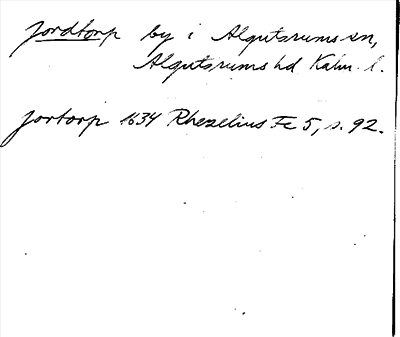 Jordtorp by i Algutsrums sn,
Algutsrums hd Kalm. l.
Jortorp 1634 Rhezelius Fc 5, s. 92.